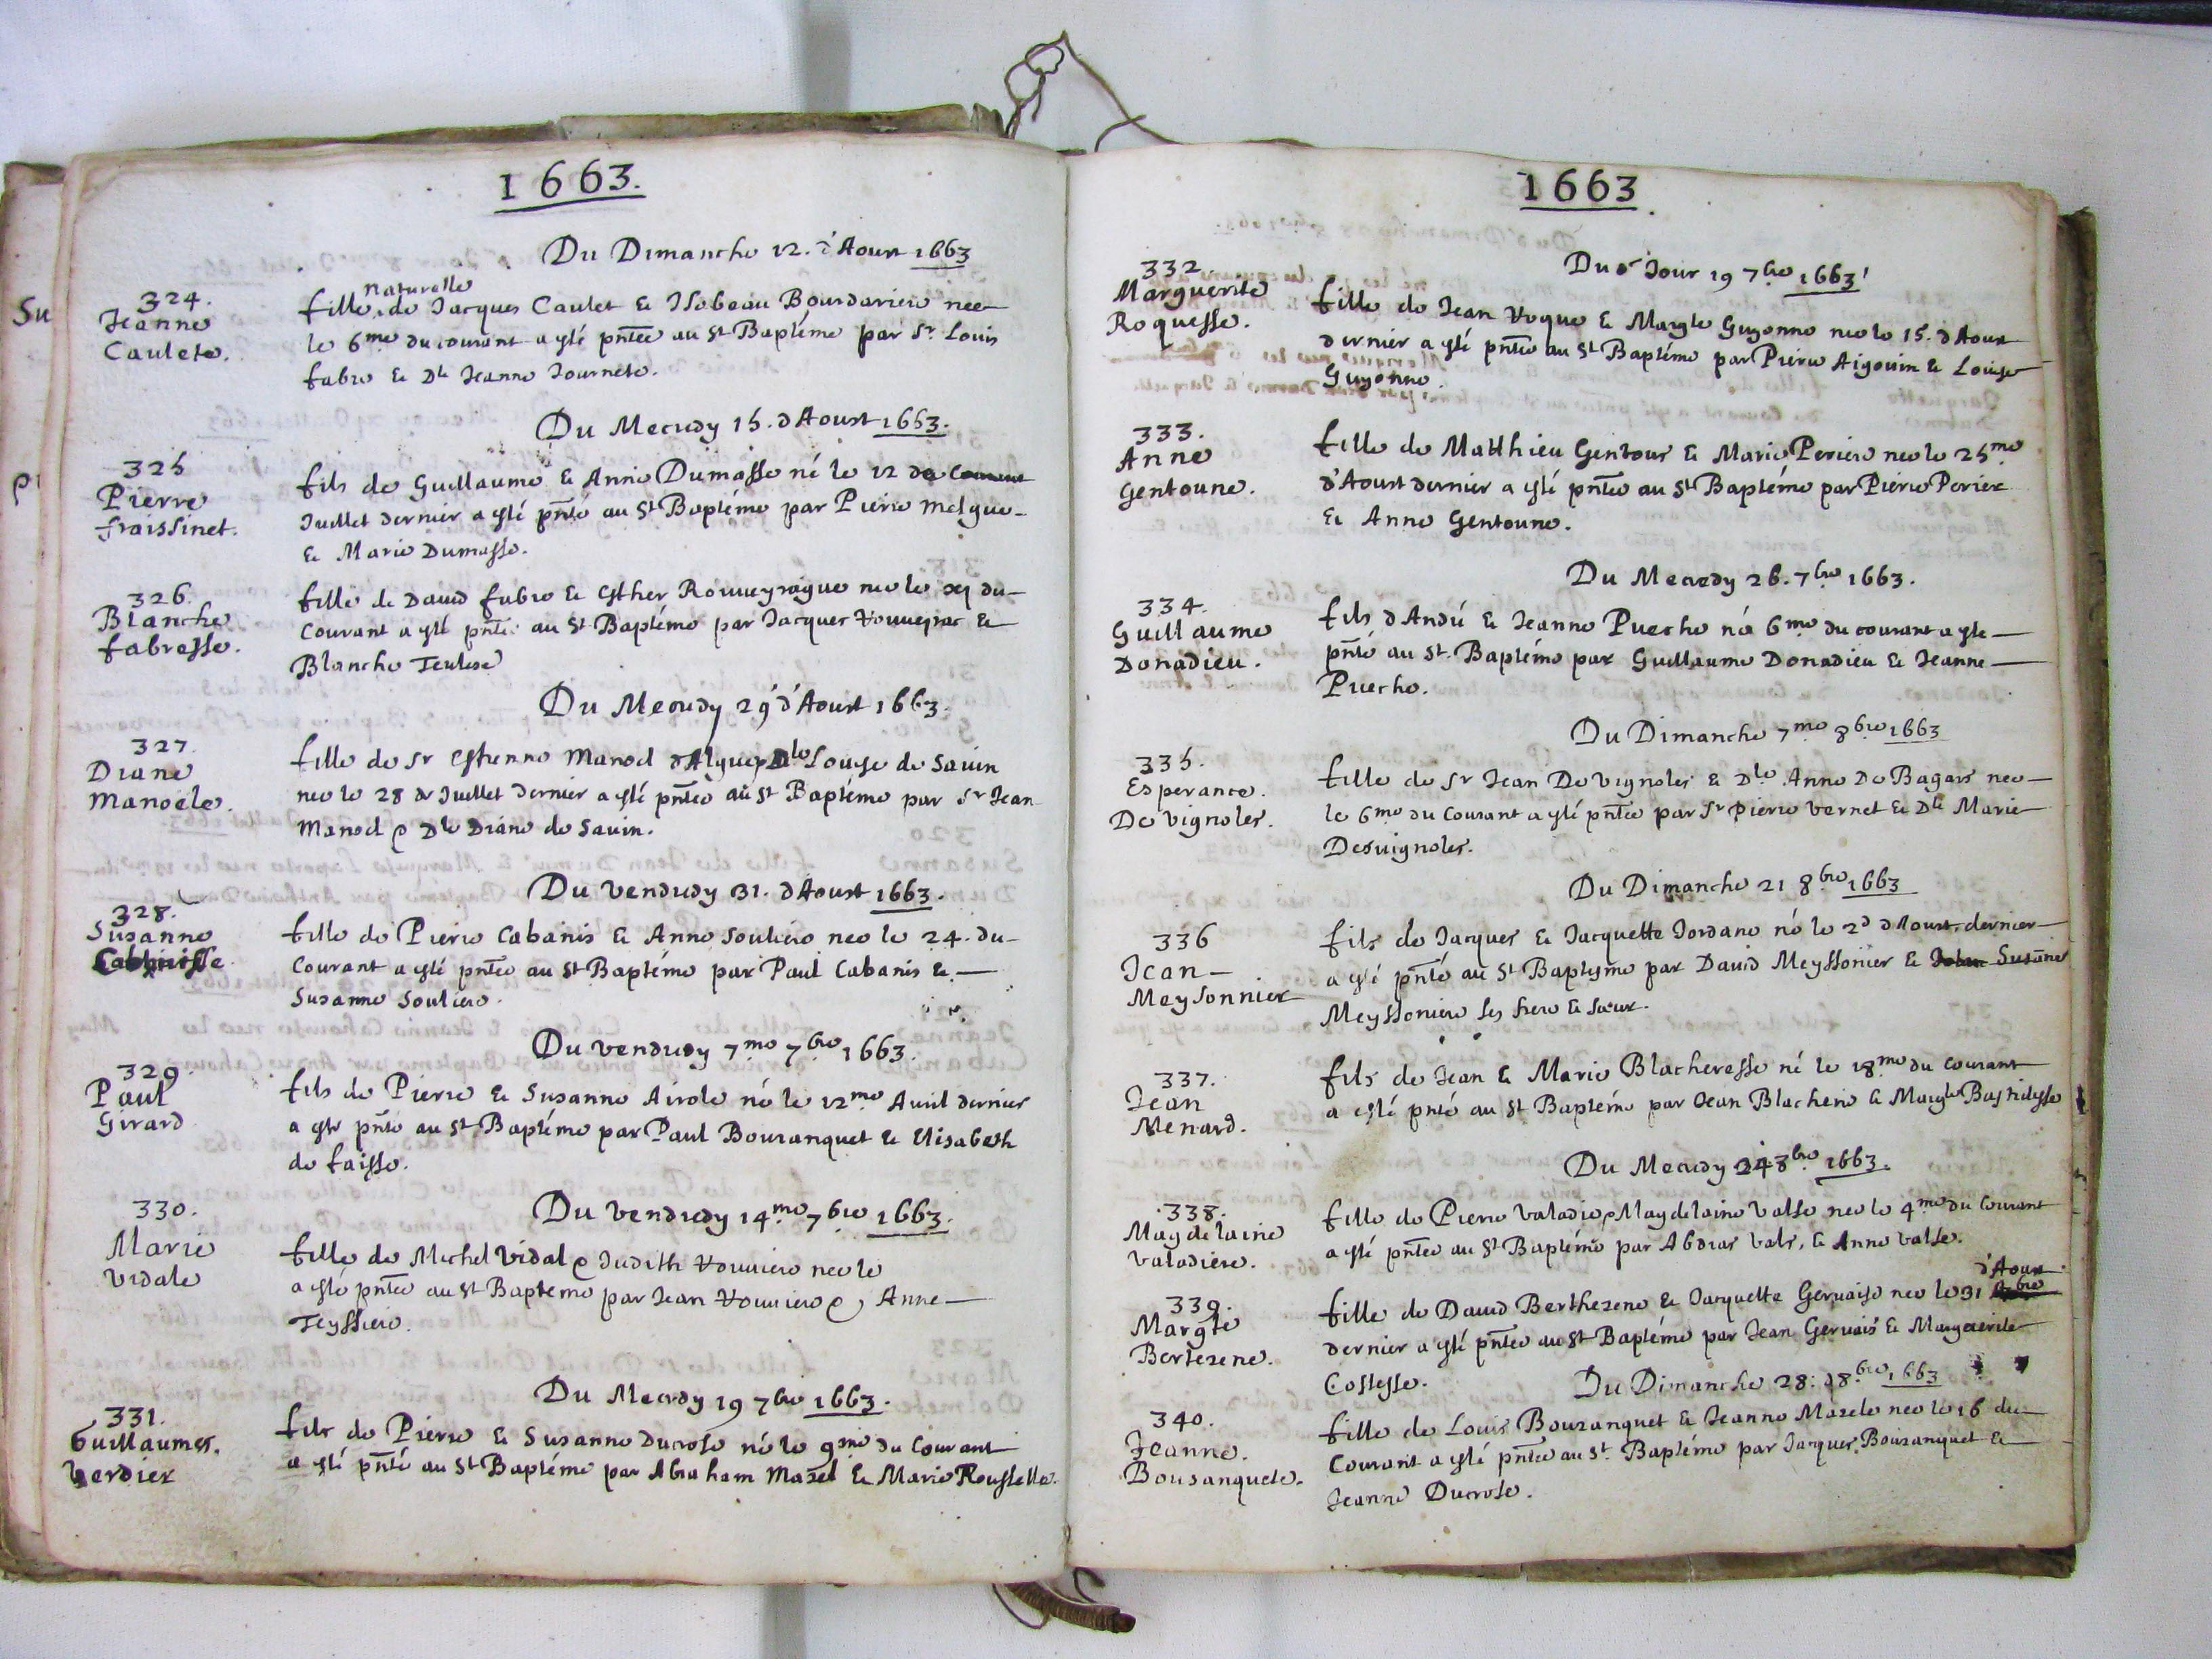 1663.
Du Dimanche 12. d'Aoust 1663
324.
Jeanne
Caulete.
naturelle
fille de Jacques Caulet & Isabeau Bourdariere nee
le 6me du courant a esté pñtee au St Baptéme par Sr. Louis
fabre & Dle Jeanne Journete.
Du Mecredy 15. d'Aoust 1663.
325
Pierre
fraissinet.
fils de Guillaume & Anne Dumasse né le 12 de Courant
Juillet dernier a esté pñté au St Baptéme par Pierre melgue
& Marie Dumasse.
326.
Blanche
fabresse.
fille de David fabre & Esther Rouveyrague nee le xj du
Courant a esté pñtee au St Baptéme par Jacques Rouveyrac &
Blanche Teulese
Du Mecredy 29 d'Aoust 1663.
327.
Diane
manoele.
fille de Sr Estienne Manoel d'Algue & Dle Louise de Savin
nee le 28 de Juillet dernier a esté pñtee au St Baptéme par Sr Jean
Manoel & Dle Diane de Savin.
Du vendredy 31. d'Aoust 1663.
328.
Susanne
Cabanisse
fille de Pierre Cabanis & Anne Souliere nee le 24. du
Courant a esté pñtee au St Baptéme par Paul Cabanis &
Susanne Souliere.
Du vendredy 7me 7bre 1663.
329.
Paul
Girard
fils de Pierre & Susanne Airole né le 12me Avril dernier
a esté pñté au St Baptéme par Paul Bouranquet & Elisabeth
de faisse.
Du vendredy 14me 7bre 1663.
330.
Marie
Vidale
fille de Michel Vidal & Judith Rouviere nee le
a esté pñtee au St Bapteme par Jean Rouviere & Anne
Teyssiere.
Du Mecredy 19 7bre 1663.
331.
Guillaumes.
Verdier
fils de Pierre & Susanne Ducrose né le 9me du Courant
a esté pñté au St Baptéme par Abraham Mazel & Marie Rousselle.
1663
Du d. Jour 19 7bre 1663
332.
Marguerite
Roquesse.
fille de Jean Roque & Margte Guyonne nee le 15. d'Aoust
dernier a esté pñtee au St Baptéme par Pierre Aigouin & Louise
Guyonne.
333.
Anne
Gentoune.
fille de Matthieu Gentous & Marie Periere nee le 25me
d'Aoust dernier a esté pñtee au St Baptéme par Pierre Perier
& Anne Gentoune.
Du Mecredy 26. 7bre 1663.
334.
Guillaume
Donadieu.
fils d'André & Jeanne Pueche né 6me du courant a esté
pñté au St. Baptéme par Guillaume Donadieu & Jeanne
Pueche.
Du Dimanche 7me 8bre 1663
335.
Esperance.
De Vignoles.
fille de Sr Jean De Vignoles & Dle Anne De Bagars nee
le 6me du Courant a esté pñtee par Sr Pierre Vernet & Dle Marie
Desvignoles.
Du Dimanche 21 8bre 1663
336
Jean
Meysonnier
fils de Jacques & Jacquette Jordane né le 2d d'Aoust dernier
a esté pñté au St Baptesme par David Meyssonier & Susane
Meyssoniere ses frere & sœur.
337.
Jean
Menard.
fils de Jean & Marie Blacheresse né le 18me du Courant
a esté pñté au St Baptéme par Jean Blachere & Margte Bastidesse
Du Mecredy 24 8bre 1663.
338.
Magdelaine
Valadiere.
fille de Pierre Valadie & Magdelaine Valse nee le 4me du Courant
a esté pñtee au St Baptéme par Abdias Vals, & Anne Valse.
339.
Margte
Bertezene.
d'Aoust
fille de David Berthezene & Jacquette Gervaise nee le 31
dernier a esté pñtee au St Baptéme par Jean Gervais & Marguerite
Costesse.
Du Dimanche 28. 8bre 1663
340.
Jeanne.
Bousanquete.
fille de Louis Bouzanquet & Jeanne Mazele nee le 16 du
Courant a esté pñtee au St. Baptéme par Jacques Bouzanquet &
Jeanne Ducrose.